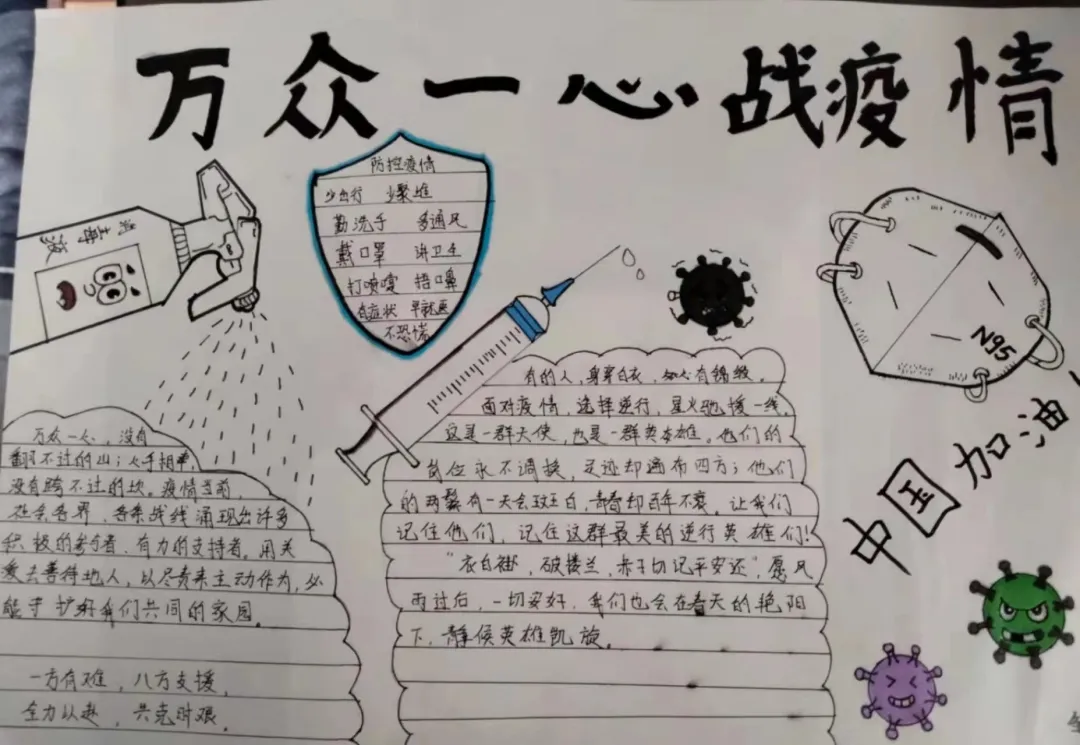 万众一心战疫情
防控疫情
少出行 少聚堆
勤洗手 多通风
戴口罩 讲卫生
打喷嚏 捂口鼻
有症状 早就医
不恐慌
消毒液
N95
中国加油
万众一心,没有
翻不过的山;心手相牵,
没有跨不过的坎。疫情当前,
社会各界、各条战线涌现出许多
积极的参与者、有力的支持者。用关
爱去善待他人,以尽责来主动作为,必
能守护好我们共同的家园。
一方有难,八方支援,
全力以赴,共克时艰。
有的人,身穿白衣,心有锦缎。
面对疫情,选择逆行,星火驰援一线。
这是一群天使,也是一群英雄。他们的
岗位永不调换,足迹却遍布四方;他们
的两鬓有一天会斑白,青春却百年不衰。让我们
记住他们,记住这群最美的逆行英雄们!
“衣白褂,破楼兰,赤子切记平安还”,愿风
雨过后,一切安好,我们也会在春天的艳阳
下,静候英雄凯旋。